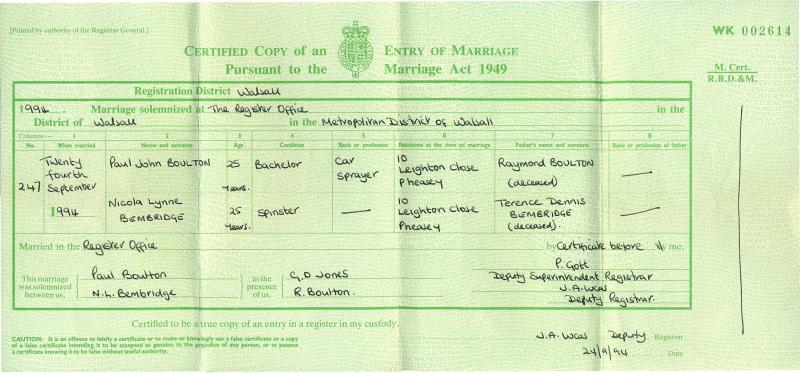 [Printed by authority of the Registrar General.]
WK 002614
CERTIFIED COPY of an ENTRY OF MARRIAGE
Pursuant to the Marriage Act 1949
M. Cert.
R.B.D.&M.
Registration District Walsall
1994. Marriage solemnized at The Register Office in the
District of Walsall in the Metropolitan District of Walsall
Columns:— 1 2 3 4 5 6 7 8
No. When married Name and surname Age Condition Rank or profession Residence at the time of marriage Father's name and surname Rank or profession of father
247 Twenty fourth September 1994
Paul John BOULTON 25 years. Bachelor Car Sprayer 10 Leighton Close Pheasey Raymond BOULTON (deceased) —
Nicola Lynne BEMBRIDGE 25 years. Spinster — 10 Leighton Close Pheasey Terence Dennis BEMBRIDGE (deceased). —
Married in the Register Office by Certificate before me,
This marriage was solemnized between us,
Paul Boulton
N.L. Bembridge
in the presence of us.
G.D Jones
R. Boulton.
P. Gott
Deputy Superintendent Registrar
J.A.
Deputy Registrar.
Certified to be a true copy of an entry in a register in my custody.
CAUTION: It is an offence to falsify a certificate or to make or knowingly use a false certificate or a copy
of a false certificate intending it to be accepted as genuine to the prejudice of any person, or to possess
a certificate knowing it to be false without lawful authority.
J.A. Deputy Registrar
24/9/94 Date